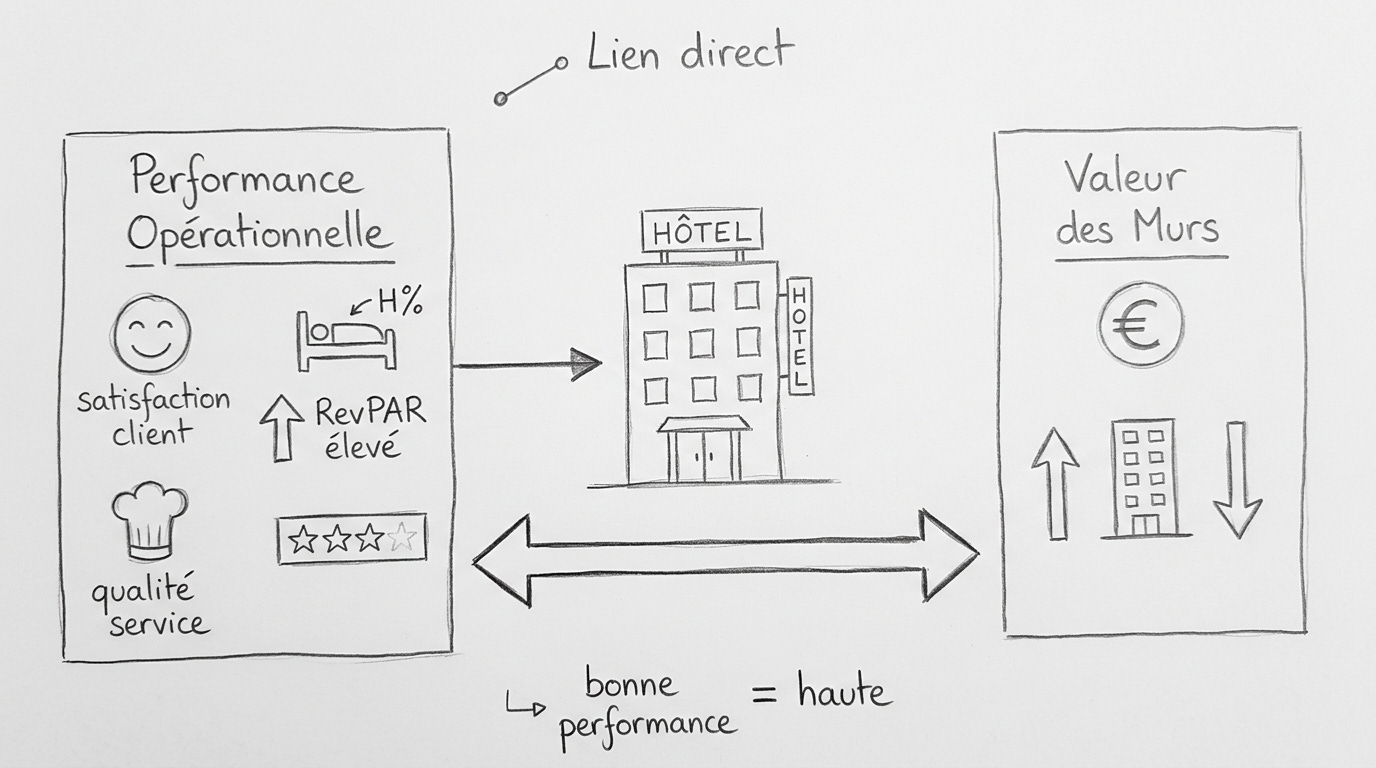 Lien direct
Performance
Opérationnelle
H%
satisfaction
client
RevPAR
élevé
qualité
service
HÔTEL
HOTEL
Valeur
des Murs
€
bonne
performance = haute